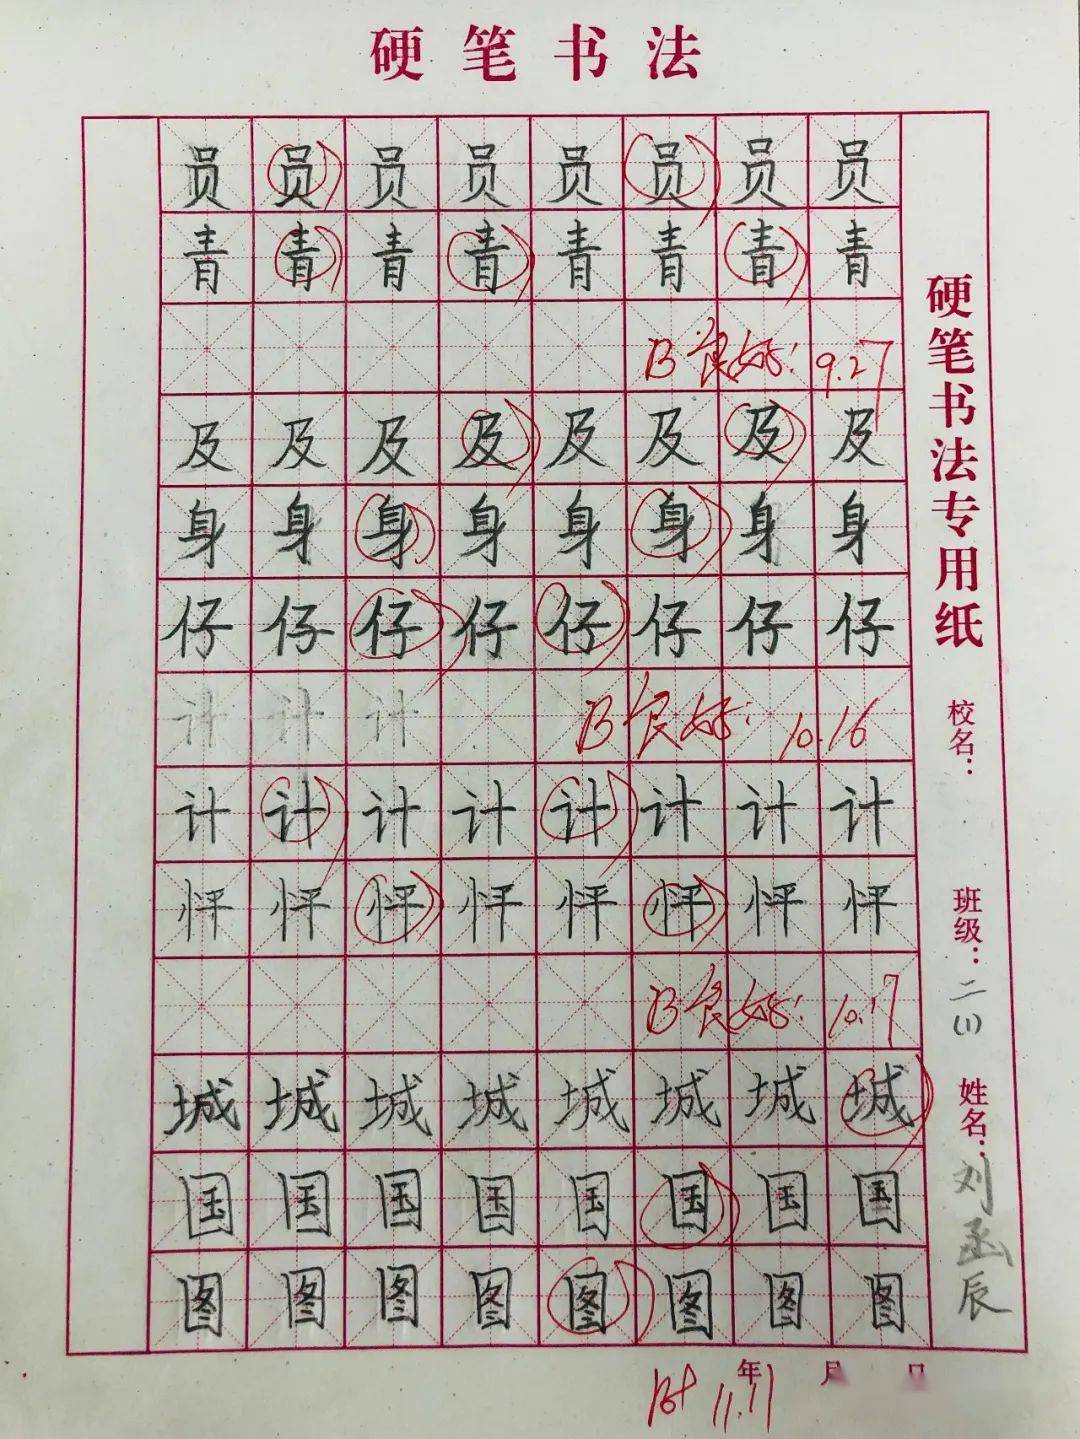 硬笔书法
员员员员员员员员
青青青青青青青青
B 良好! 9.27
及及及及及及及及
身身身身身身身身
仔仔仔仔仔仔仔仔
计计计
B 良好! 10.16
计计计计计计计计
怦怦怦怦怦怦怦怦
B 良好! 10.17
城城城城城城城城
国国国国国国国国
图图图图图图图图
年 月 日
B+ 11.11
硬笔书法专用纸
校名：
班级：二(1)
姓名：刘函辰